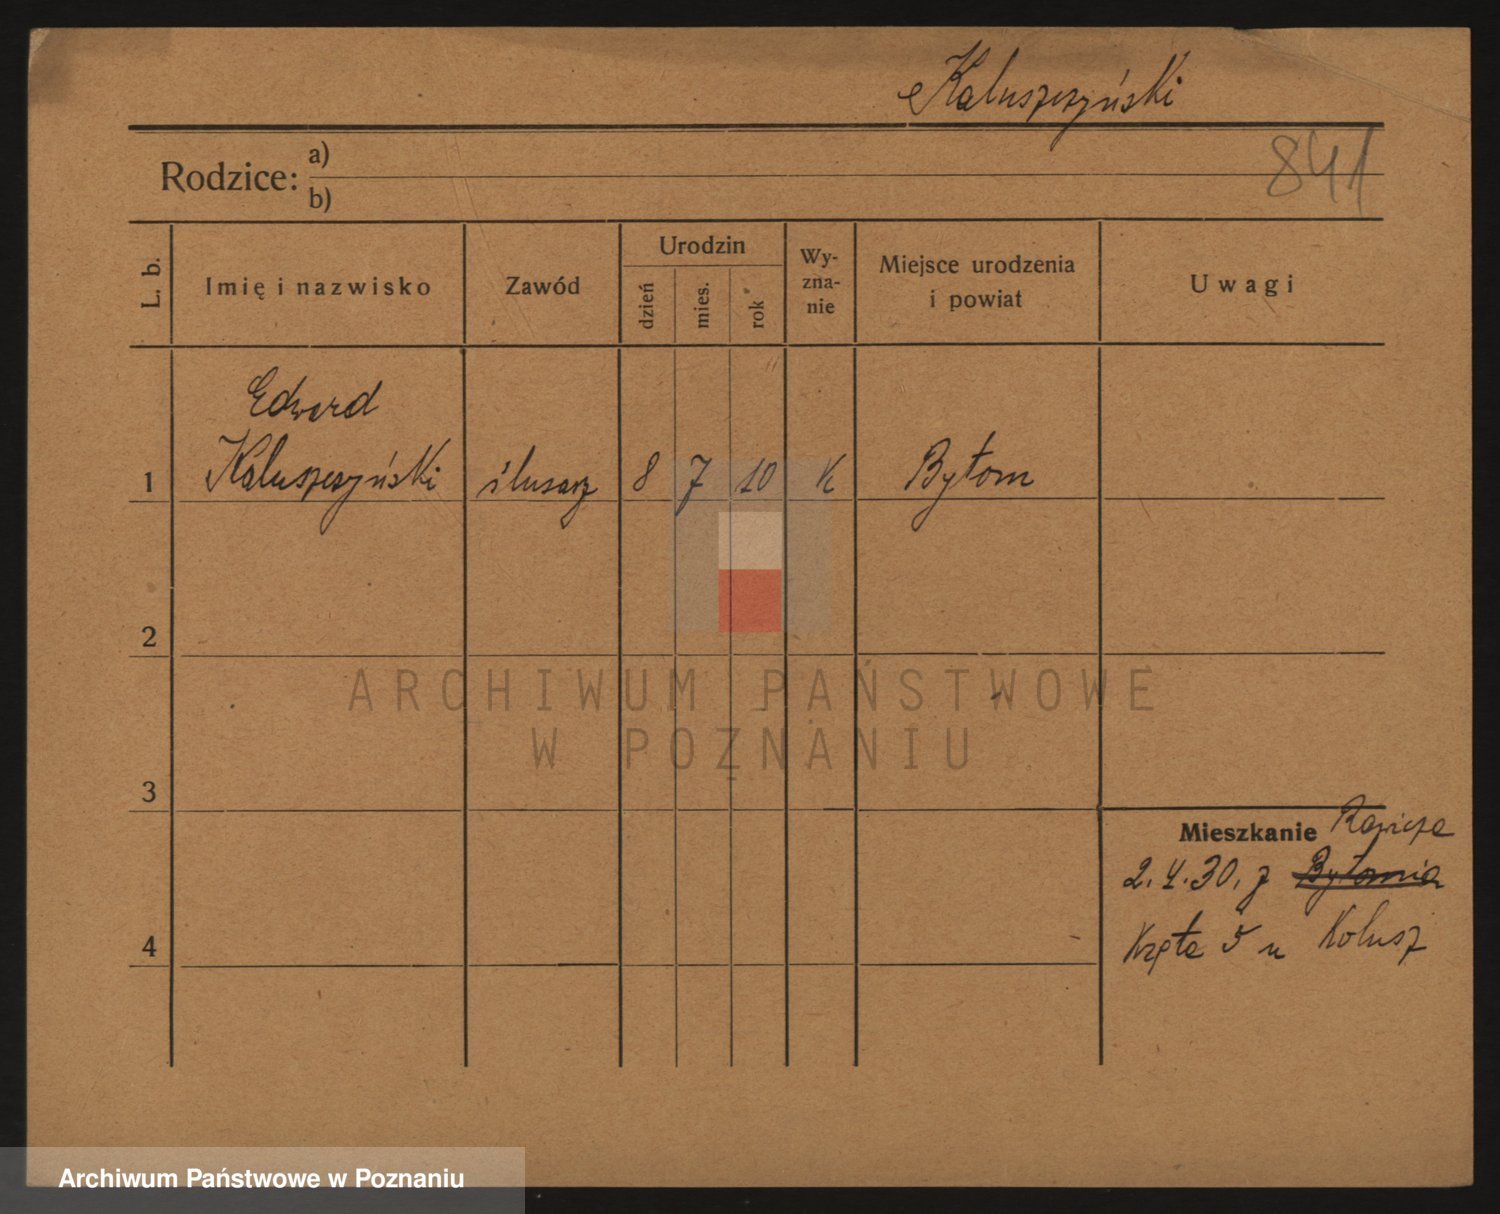 Kaluszczyński
841
Rodzice: a)
b)
L. b.
Imię i nazwisko
Zawód
Urodzin
dzień
mies.
rok
Wy-
zna-
nie
Miejsce urodzenia
i powiat
Uwagi
Edward
1 Kaluszczyński ślusarz 8 7 10 K Bytom
2
ARCHIWUM PAŃSTWOWE
W POZNANIU
3
Mieszkanie
2.4.30. z Bytomia
4 Kręta 5 u Kolusz
Archiwum Państwowe w Poznaniu